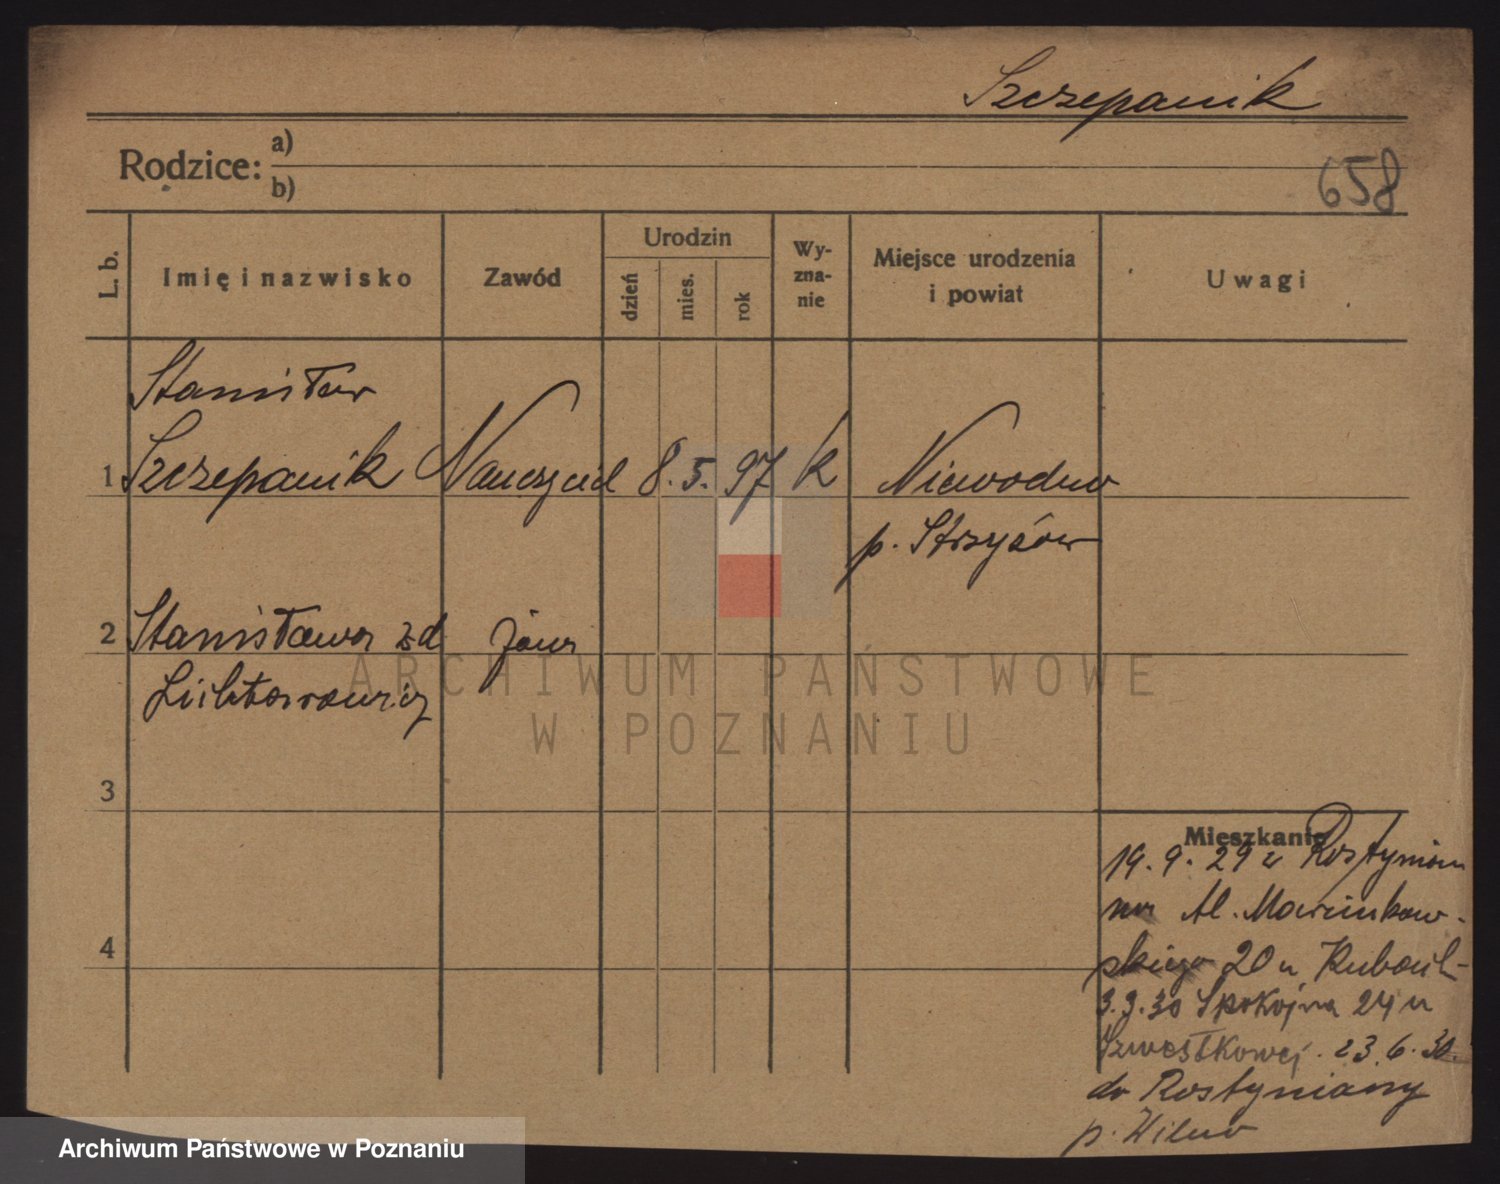 Szczepanik
Rodzice: a)
b)
658
L. b.
Imię i nazwisko
Zawód
Urodzin
dzień
mies.
rok
Wy-
zna-
nie
Miejsce urodzenia
i powiat
Uwagi
Stanisław
1 Szczepanik Nauczyciel 8. 5. 97 k Niewodna
p. Strzyżów
2 Stanisława zd żona
ARCHIWUM PAŃSTWOWE
W POZNANIU
3
Mieszkanie
19. 9. 29 z
na Al. Marcinkow-
4
skiego 20 u
3. 9. 30 Spokojna 24 u
23. 6. 30.
do Rostyniany
p. Wilno
Archiwum Państwowe w Poznaniu